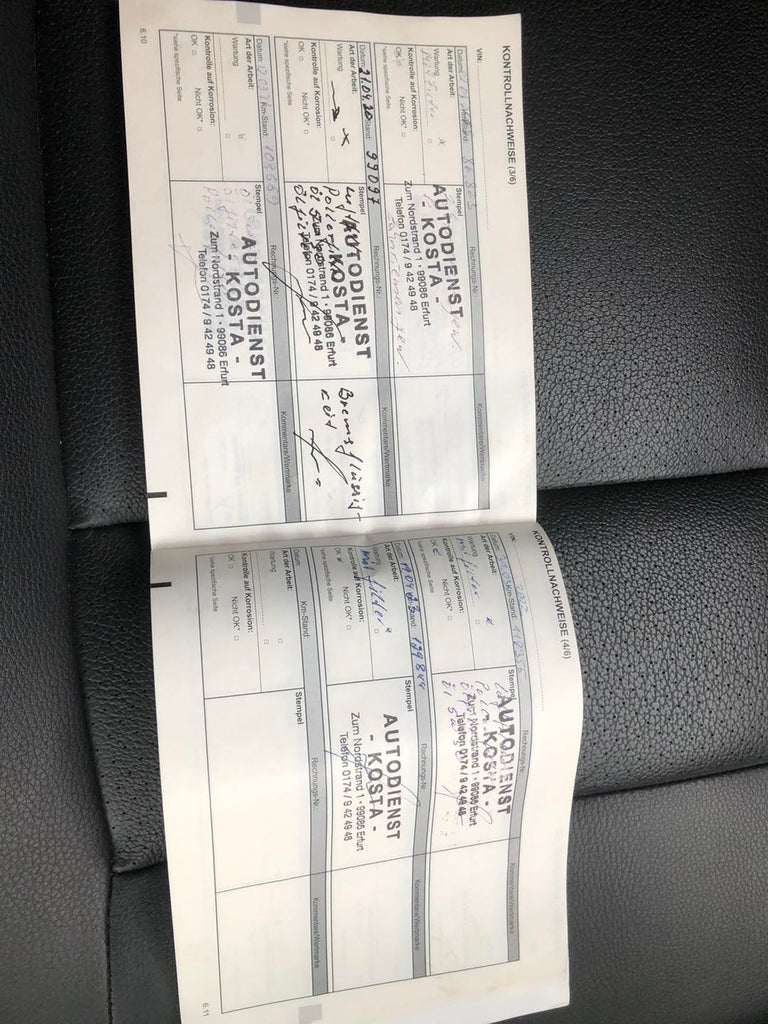 KONTROLLNACHWEISE (3/6)
VIN:
Datum: Km-Stand: 80 803
Art der Arbeit:
Wartung
Kontrolle auf Korrosion:
OK Nicht OK*
*siehe spezifische Seite
Stempel
AUTODIENST
- KOSTA -
Zum Nordstrand 1 · 99086 Erfurt
Telefon 0174 / 9 42 49 48
Rechnungs-Nr.:
Kommentare/Wertmarke
Datum: 21.04.20 Km-Stand: 99097
Art der Arbeit:
Wartung x
Kontrolle auf Korrosion:
OK Nicht OK*
*siehe spezifische Seite
Stempel
AUTODIENST
- KOSTA -
Zum Nordstrand 1 · 99086 Erfurt
Telefon 0174 / 9 42 49 48
Rechnungs-Nr.:
Kommentare/Wertmarke
Bremsflüssig-
keit
Datum: Km-Stand: 108669
Art der Arbeit:
Wartung
Kontrolle auf Korrosion:
OK Nicht OK*
*siehe spezifische Seite
Stempel
AUTODIENST
- KOSTA -
Zum Nordstrand 1 · 99086 Erfurt
Telefon 0174 / 9 42 49 48
Rechnungs-Nr.:
Kommentare/Wertmarke
6.10
KONTROLLNACHWEISE (4/6)
VIN:
Datum: Km-Stand:
Art der Arbeit:
Wartung
Kontrolle auf Korrosion:
OK Nicht OK*
*siehe spezifische Seite
Stempel
AUTODIENST
- KOSTA -
Zum Nordstrand 1 · 99086 Erfurt
Telefon 0174 / 9 42 49 48
Rechnungs-Nr.:
Kommentare/Wertmarke
Datum: Km-Stand: 129844
Art der Arbeit:
Wartung
Kontrolle auf Korrosion:
OK Nicht OK*
*siehe spezifische Seite
Stempel
AUTODIENST
- KOSTA -
Zum Nordstrand 1 · 99086 Erfurt
Telefon 0174 / 9 42 49 48
Rechnungs-Nr.:
Kommentare/Wertmarke
Datum: Km-Stand:
Art der Arbeit:
Wartung
Kontrolle auf Korrosion:
OK Nicht OK*
*siehe spezifische Seite
Stempel
Rechnungs-Nr.:
Kommentare/Wertmarke
6.11